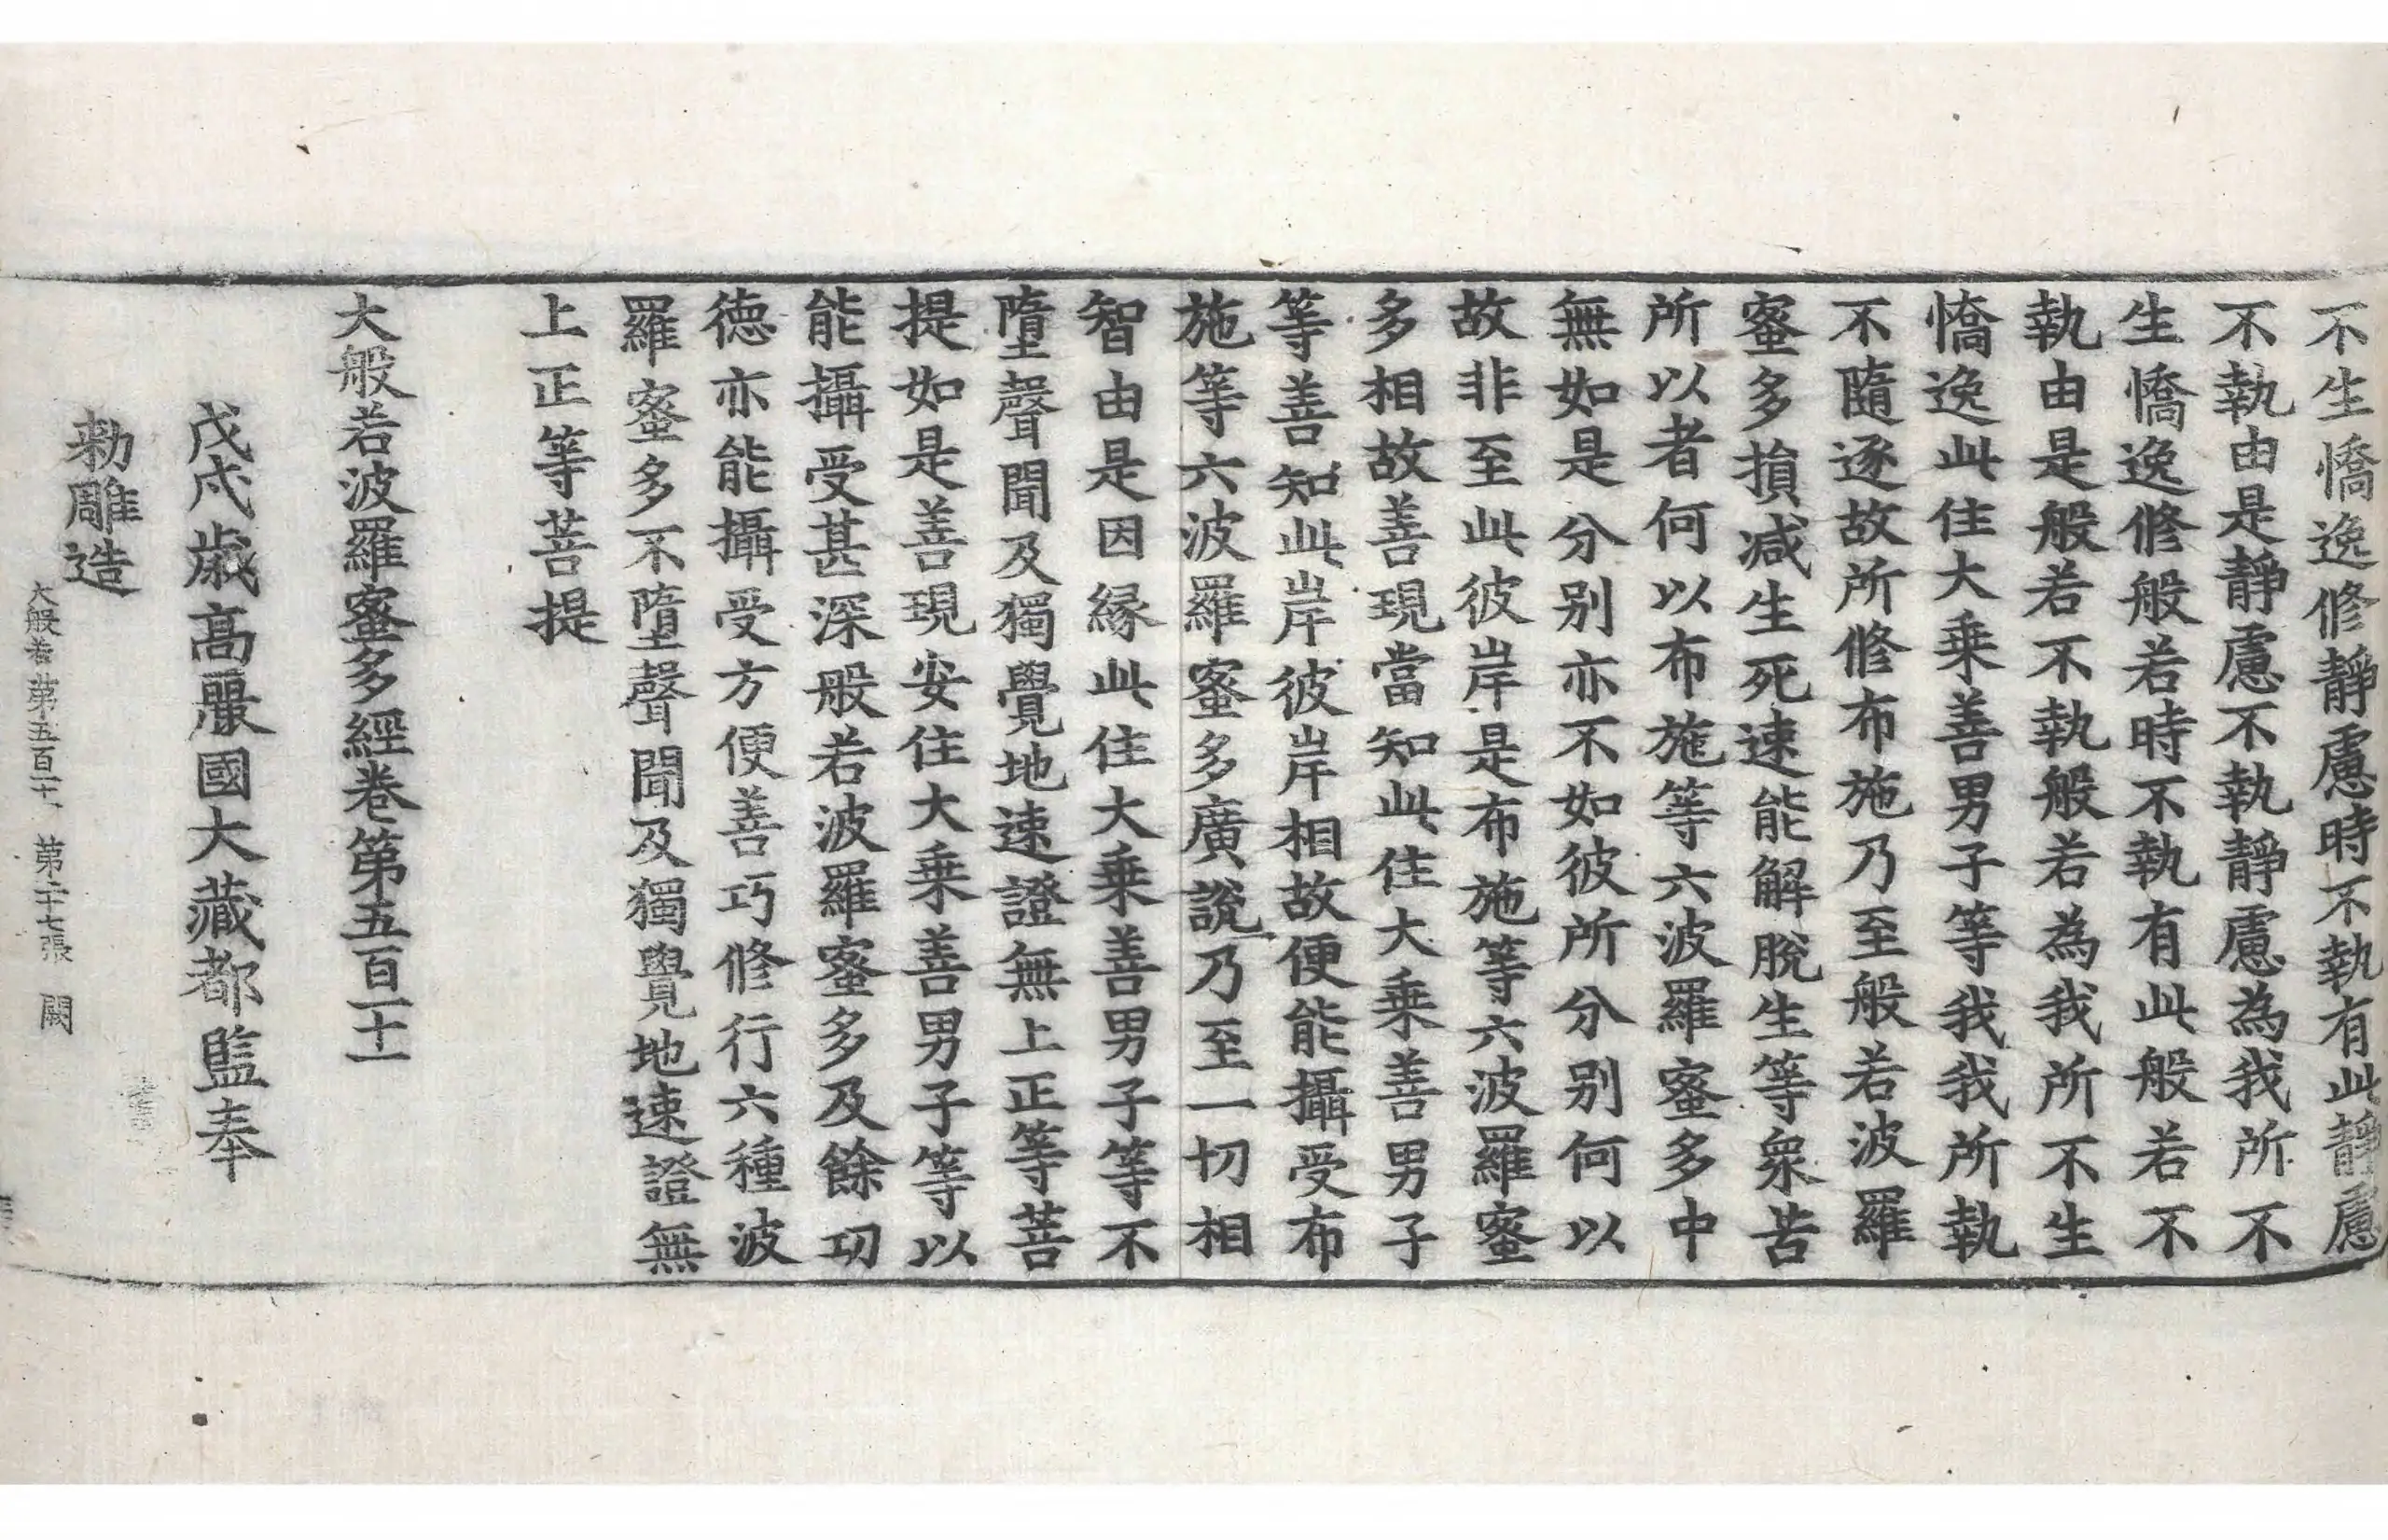 不生憍逸修靜慮時不執有此靜慮
不執由是靜慮不執靜慮為我所不
生憍逸修般若時不執有此般若不
執由是般若不執般若為我所不生
憍逸此住大乘善男子等我我所執
不隨逐故所修布施乃至般若波羅
蜜多損減生死速能解脫生等衆苦
所以者何以布施等六波羅蜜多中
無如是分別亦不如彼所分別何以
故非至此彼岸是布施等六波羅蜜
多相故善現當知此住大乘善男子
等善知此岸彼岸相故便能攝受布
施等六波羅蜜多廣說乃至一切相
智由是因緣此住大乘善男子等不
墮聲聞及獨覺地速證無上正等菩
提如是善現安住大乘善男子等以
能攝受甚深般若波羅蜜多及餘功
德亦能攝受方便善巧修行六種波
羅蜜多不墮聲聞及獨覺地速證無
上正等菩提
大般若波羅蜜多經卷第五百一十一
戊戌歲高麗國大藏都監奉
勅雕造
大般若 第五百十一 第二十七張 闕